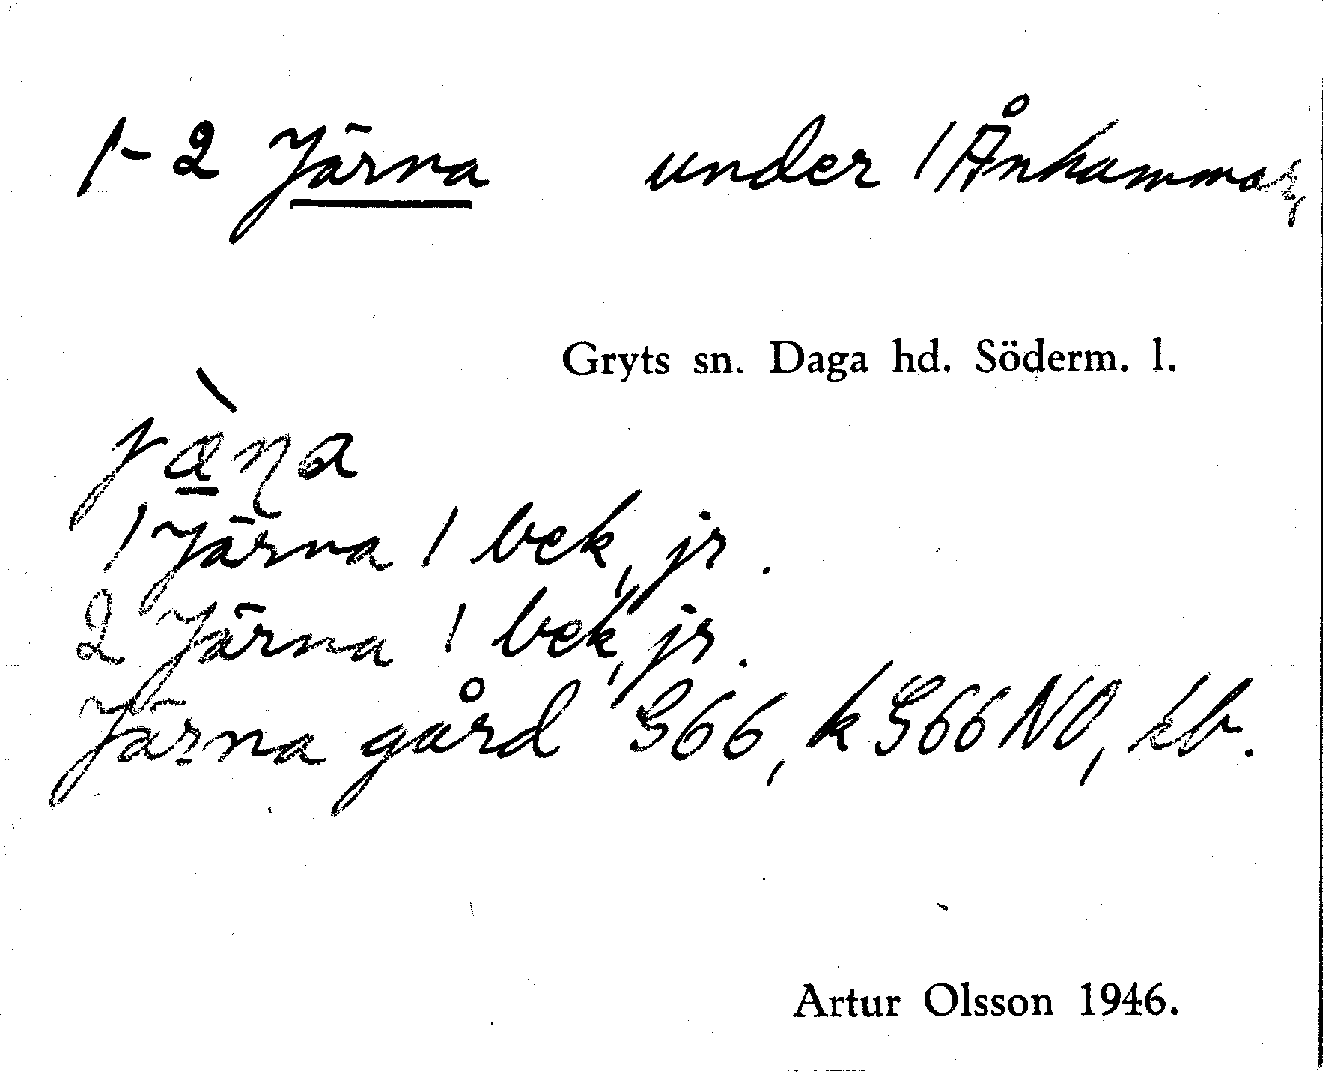 1-2 Järna under 1 Ånhammar,
Gryts sn. Daga hd. Söderm. l.
jæ̀ɳa
1 Järna 1 bek, jr.
2 Järna 1 bek, jr.
Järna gård G66, k G66 NO, kb.
Artur Olsson 1946.